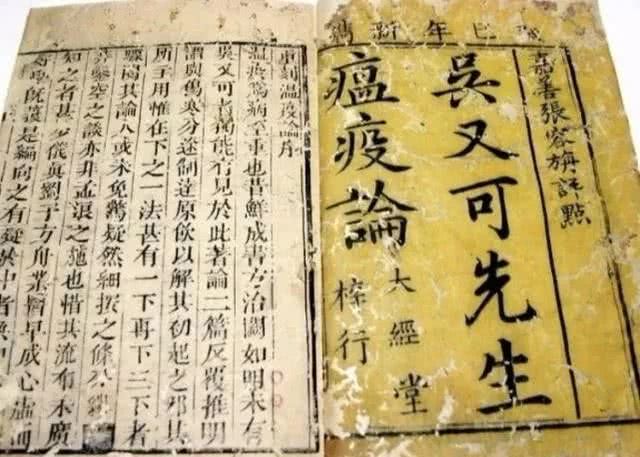 巳年新鐫
嘉善張容旃註點
吳又可先生
瘟疫論
大經堂
梓行
重刻温疫論序
温疫為病至重也昔鮮成書方治闕如明末有
吳又可者獨能有見於此著論二篇反覆推明
謂與傷寒分迷制達原飲以解其初起之邪其
所主用惟在下之一法甚有一下再下三下者
驟閱其論人或未免驚疑然細按之條分縷
空之談亦非孟浪之施也惜其流有未廣
知之者甚少儀真劉子方舟業醫早成心虛而
學既護是編向之有疑於中者無